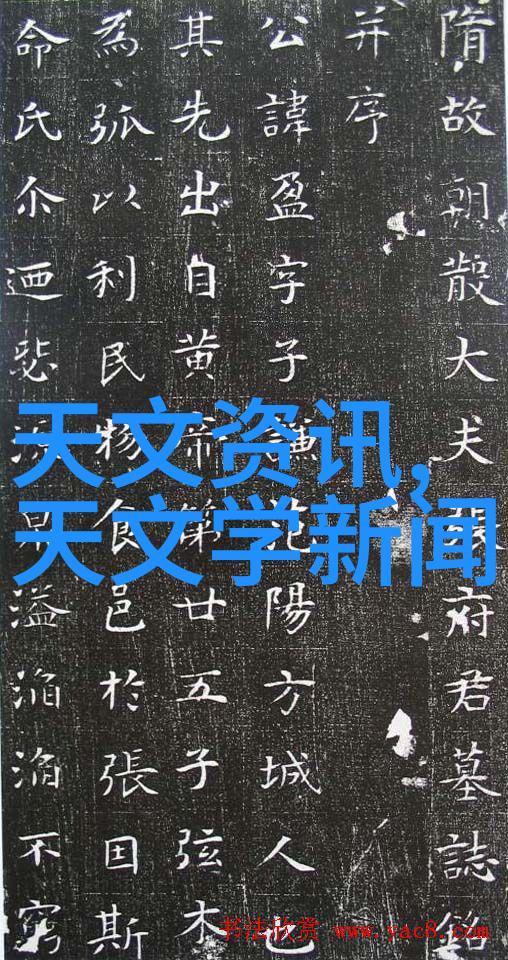 隋故朝散大夫張府君墓誌銘
并序
公諱盈字子謙范陽方城人也
其先出自黃帝第廿五子弦木
為弧以利民物食邑於張因斯
命氏尒迺溢滔滔不窮
天文资讯,
天文学新闻
书法欣赏 www.yac8.com